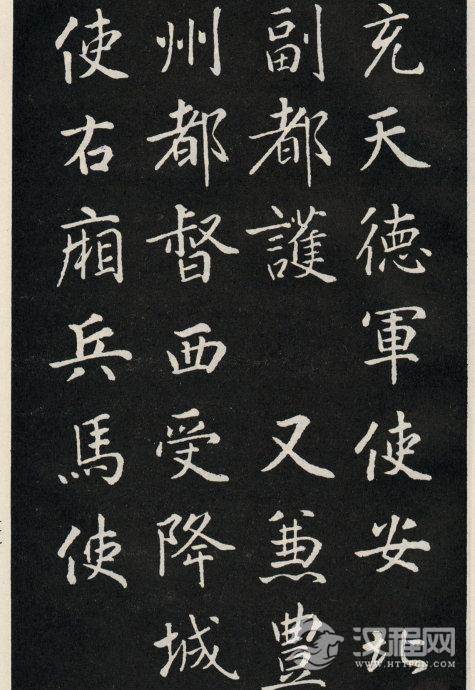 充天德軍使安北
副都護 又兼豊
州都督西受降城
使右廂兵馬使
汉程网
WWW.HTTPCN.COM